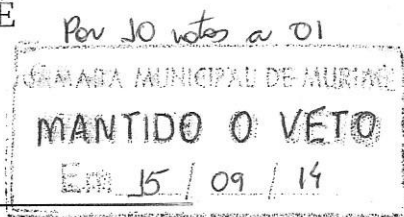 E
Por 10 votos a 01
CÂMARA MUNICIPAL DE MURIAÉ
MANTIDO O VETO
Em 15 / 09 / 14